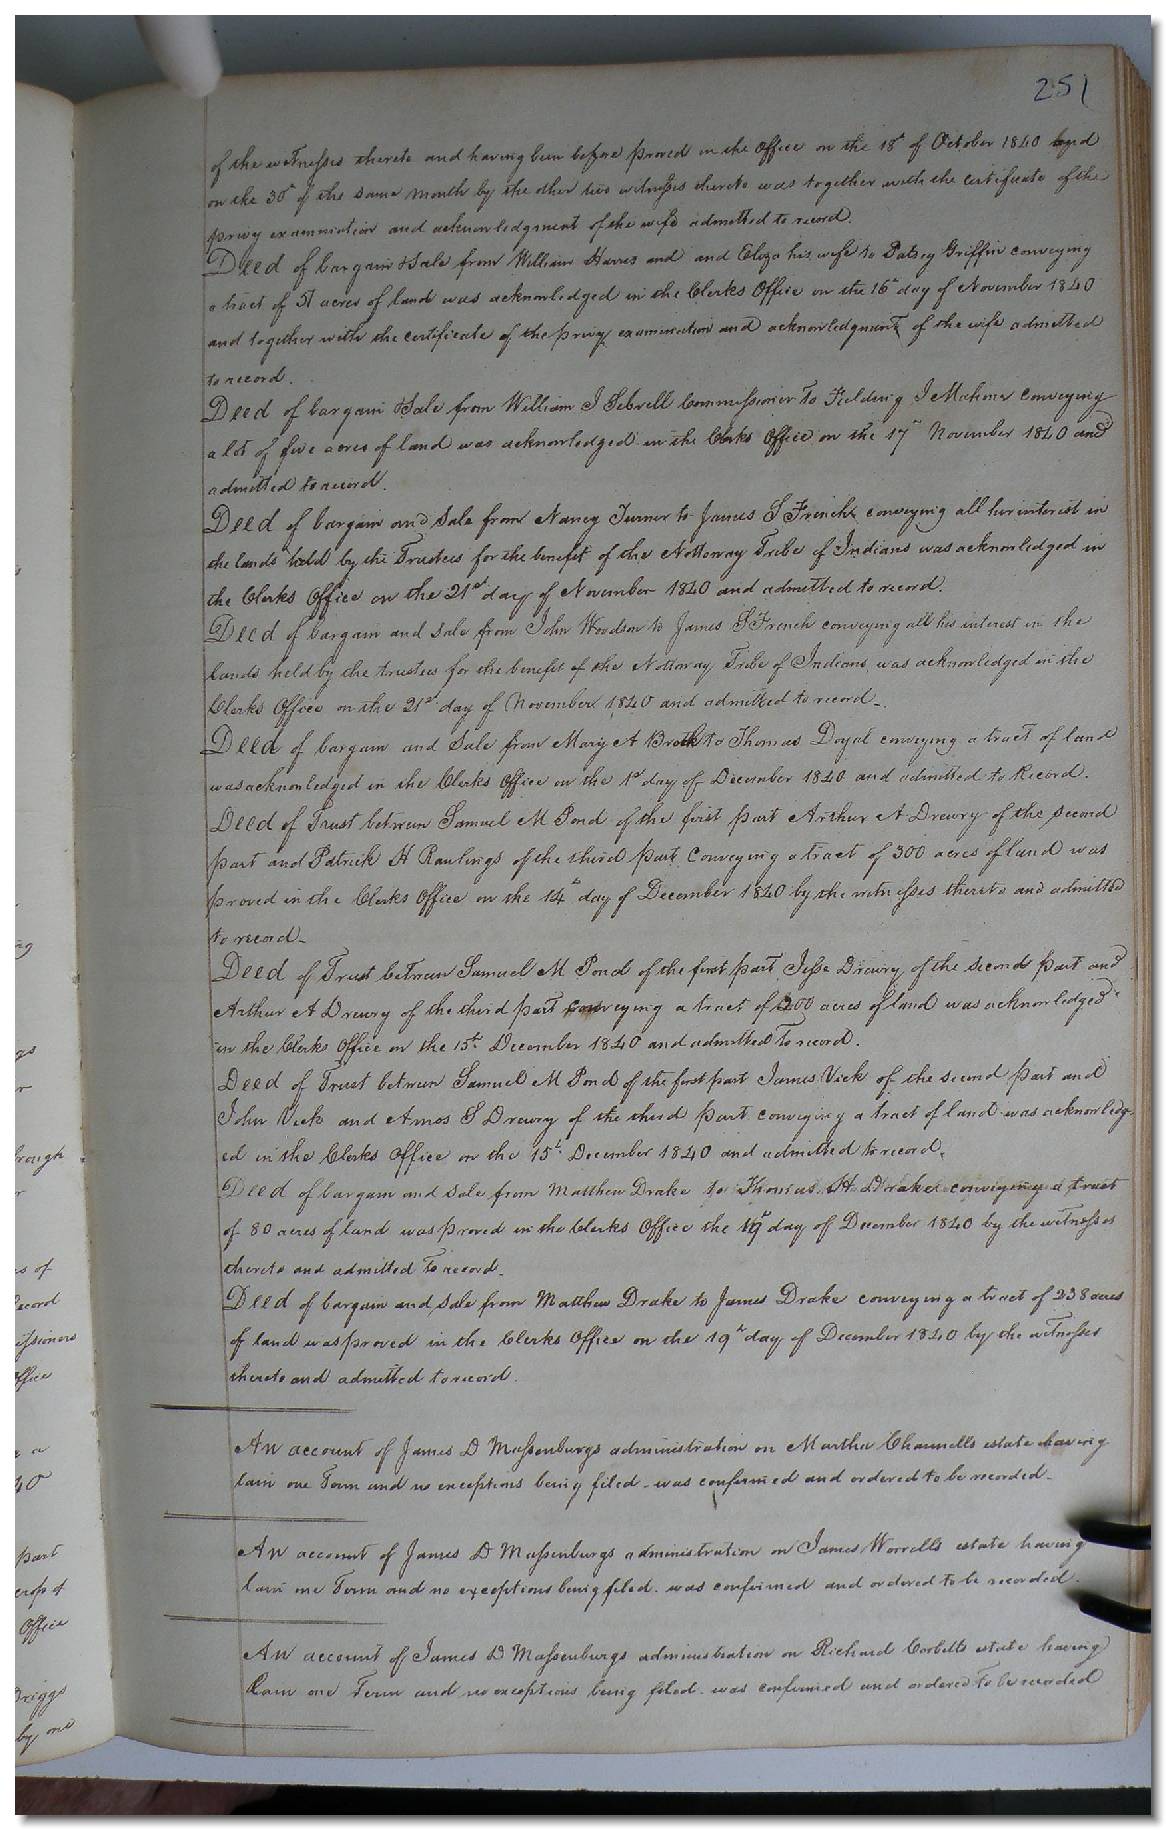 251
of the witnesses thereto and having been before proved in the Office on the 18th of October 1840 and
on the 30th of the same month by the other two witnesses thereto was together with the certificate of the
privy examination and acknowledgment of the wife admitted to record.
Deed of bargain & Sale from William Harris and and Eliza his wife to Patsey Griffin conveying
a tract of 51 acres of land was acknowledged in the Clerks Office on the 16th day of November 1840
and together with the certificate of the privy examination and acknowledgment of the wife admitted
to record.
Deed of bargain & Sale from William J Sebrell Commissioner to Fielding J Mahone conveying
a lot of five acres of land was acknowledged in the Clerks Office on the 17th November 1840 and
admitted to record.
Deed of bargain and Sale from Nancy Turner to James S French conveying all her interest in
the lands held by the Trustees for the benefit of the Nottoway Tribe of Indians was acknowledged in
the Clerks Office on the 21st day of November 1840 and admitted to record.
Deed of bargain and Sale from John Woodson to James S French conveying all his interest in the
lands held by the trustees for the benefit of the Nottoway Tribe of Indians was acknowledged in the
Clerks Office on the 21st day of November 1840 and admitted to record.
Deed of bargain and Sale from Mary A to Thomas Doyal conveying a tract of land
was acknowledged in the Clerks Office on the 1st day of December 1840 and admitted to Record.
Deed of Trust between Samuel M Pond of the first part Arthur A Drewry of the second
part and Patrick H Rawlings of the third part Conveying a tract of 300 acres of land was
proved in the Clerks Office on the 14th day of December 1840 by the witnesses thereto and admitted
to record.
Deed of Trust between Samuel M Pond of the first part Jesse Drewry of the second part and
Arthur A Drewry of the third part conveying a tract of 200 acres of land was acknowledged
in the Clerks Office on the 15th December 1840 and admitted to record.
Deed of Trust between Samuel M Pond of the first part James Vick of the second part and
John Vick and Amos S Drewry of the third part conveying a tract of land was acknowledg-
ed in the Clerks Office on the 15th December 1840 and admitted to record.
Deed of bargain and sale from Matthew Drake to Thomas H Drake conveying a tract
of 80 acres of land was proved in the Clerks Office the 19th day of December 1840 by the witnesses
thereto and admitted to record.
Deed of bargain and sale from Matthew Drake to James Drake conveying a tract of 238 acres
of land was proved in the Clerks Office on the 19th day of December 1840 by the witnesses
thereto and admitted to record.
An account of James D Massenburgs administration on Martha Channells estate having
lain one Term and no exceptions being filed - was confirmed and ordered to be recorded.
An account of James D Massenburgs administration on James Worrells estate having
lain one Term and no exceptions being filed. was confirmed and ordered to be recorded.
An account of James D Massenburgs administration on Richard Corbetts estate having
Lain one Term and no exceptions being filed. was confirmed and ordered to be recorded